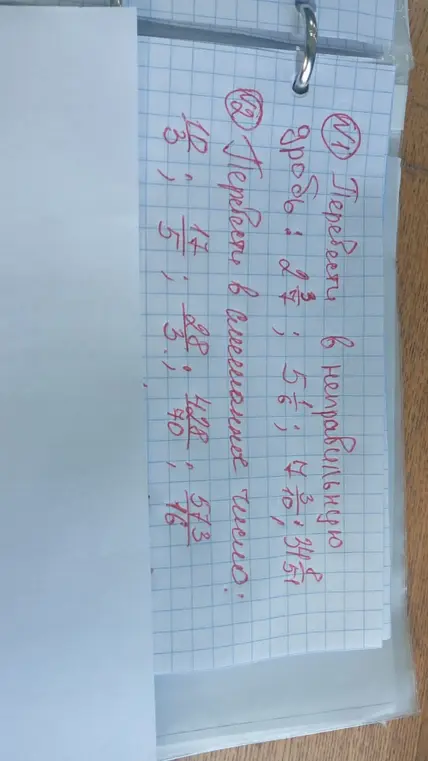 №1 Перевести в неправильную
дробь: 2 3/7; 5 1/6; 7 3/10; 34 8/51
№2 Перевести в смешанное число:
10/3; 17/5; 28/3; 428/70; 573/16